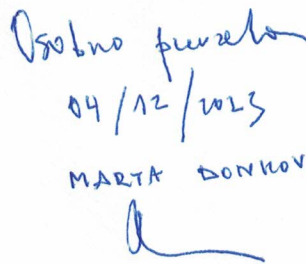 Osobno preuzela
04/12/2023
MARTA DONKOV